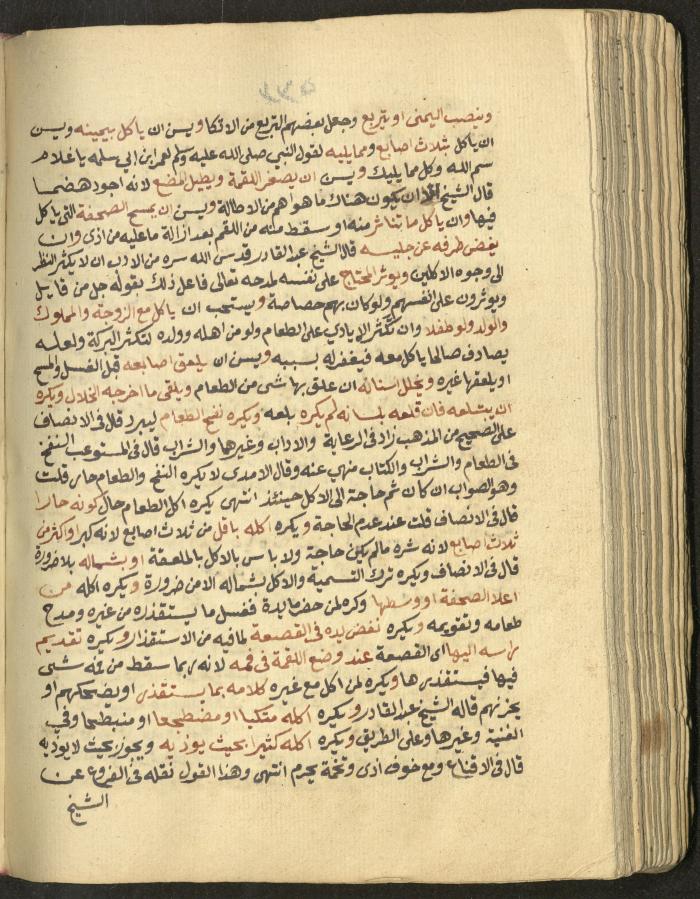 وينصب اليمنى او يتربع وجعل بعضهم التربع من الاتكا ويسن ان ياكل بيمينه ويسن
ان ياكل بثلاث اصابع ومما يليه لقول النبي صلى الله عليه وسلم لعمر ابن ابي سلمه يا غلام
سم الله وكل مما يليك ويسن ان يصغر اللقمة ويطيل المضغ لانه اجود هضما
قال الشيخ الا ان يكون هناك ما هو اهم من الاطالة ويسن ان يمسح الصحفة التي ياكل
فيها وان ياكل ما تناثر منه او سقط منه من اللقم بعد ازالة ما عليه من اذى وان
يغض طرفه عن جليسه قال الشيخ عبد القادر قدس الله سره من الادب ان لا يكثر النظر
الى وجوه الاكلين ويوثر المحتاج على نفسه لمدحه تعالى فاعل ذلك بقوله جل من قايل
ويوثرون على انفسهم ولو كان بهم خصاصة ويستحب ان ياكل مع الزوجة والمملوك
والولد ولو طفلا وان تكثر الايادي على الطعام ولو من اهله وولده لتكثر البركة ولعله
يصادف صالحا ياكل معه فيغفر له بسببه ويسن ان يلعق اصابعه قبل الغسل والمسح
او يلعقها غيره ويخلل اسنانه ان علق بها شي من الطعام ويلقى ما اخرجه الخلال ويكره
ان يبتلعه فان قلعه بلسانه لم يكره بلعه ويكره نفخ الطعام ليبرد قال في الانصاف
على الصحيح من المذهب زاد في الرعاية والاداب وغيرهما والشراب قال في المستوعب النفخ
في الطعام والشراب والكتاب منهي عنه وقال الامدى لا يكره النفخ والطعام حار قلت
وهو الصواب ان كان ثم حاجة الى الاكل حينئذ انتهى يكره اكل الطعام حال كونه حارا
قال في الانصاف قلت عند عدم الحاجة ويكره اكله باقل من ثلاث اصابع لانه كبر او اكثر من
ثلاث اصابع لانه شره مالم يكن حاجة ولا باس بالاكل بالملعقة او بشماله بلا ضرورة
قال في الانصاف ويكره ترك التسمية والاكل بشماله الا من ضرورة ويكره اكله من
اعلا الصحفة او وسطها وكره لمن حضر مايدة فعل ما يستقذره من غيره ومدح
طعامه وتقويمه ويكره نفض يده في القصعة لما فيه من الاستقذار ويكره تقديم
راسه اليها اى القصعة عند وضع اللقمة في فمه لانه ربما سقط من فمه شى
فيها فيستقذرها ويكره لمن اكل مع غيره كلامه بما يستقذر او يضحكهم او
يحزنهم قاله الشيخ عبد القادر ويكره اكله متكيا او مضطجعا او منبطحا وفي
الغنية وغيرها وعلى الطريق ويكره اكله كثيرا بحيث يوذيه ويجوز بحيث لا يوذيه
قال في الاقناع ومع خوفه اذى وتخمة يحرم انتهى وهذا القول نقله في الفروع عن
الشيخ